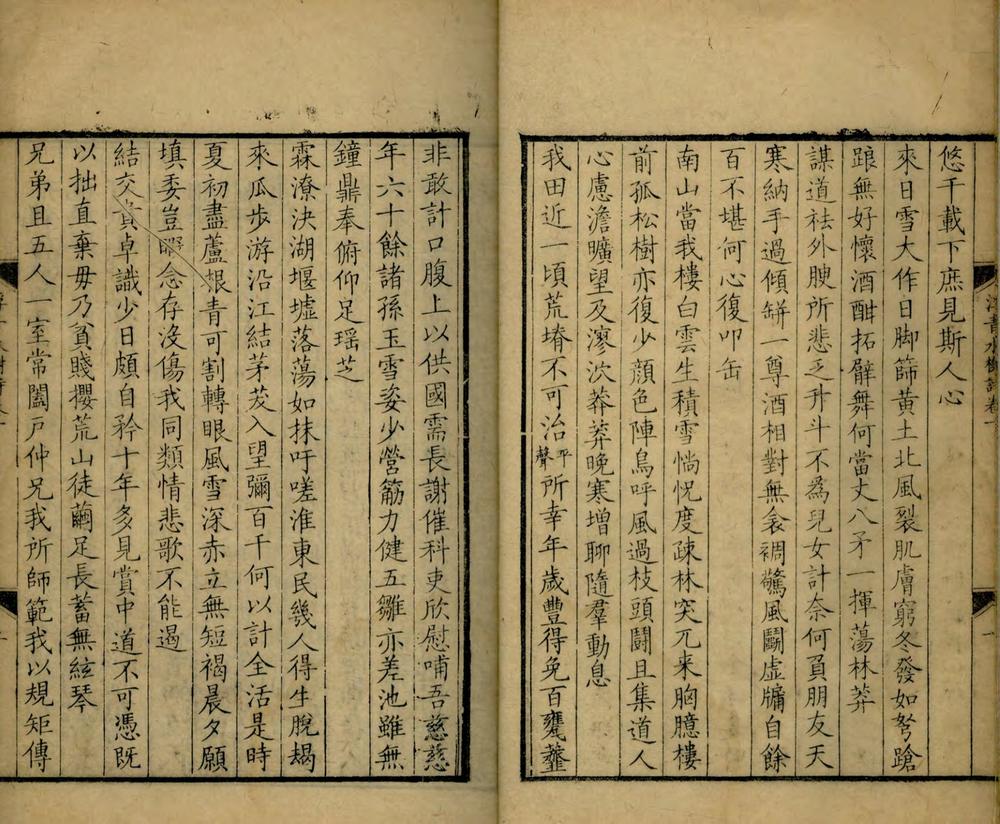 悠千載下庶見斯人心
來日雪大作日脚篩黄土北風裂肌膚窮冬發如弩蹌
踉無好懷酒酣拓臂舞何當丈八矛一揮蕩林莽
謀道祛外腴所悲乏升斗不為兒女計奈何負朋友天
寒納手過傾缾一尊酒相對無衾裯驚風鬭虛牖自餘
百不堪何心復叩缶
南山當我樓白雲生積雪惝怳度疎林突兀来胸臆樓
前孤松樹亦復少顔色陣烏呼風過枝頭鬬且集道人
心慮澹曠望及漻泬莽莽晚寒增聊隨羣動息
我田近一頃荒塉不可治平聲所幸年歲豐得免百甕虀
非敢計口腹上以供國需長謝催科吏欣慰哺吾慈慈
年六十餘諸孫玉雪姿少營筋力健五雛亦差池雖無
鐘鼎奉俯仰足瑶芝
霖潦決湖堰墟落蕩如抹吁嗟淮東民幾人得生脫朅
來瓜步游沿江結茅茇入望彌百千何以計全活是時
夏初盡蘆根青可割轉眼風雪深赤立無短褐晨夕願
填委豈暇念存没傷我同類情悲歌不能遏
結交貴卓識少日頗自矜十年多見賞中道不可憑既
以拙直棄毋乃貧賤攖荒山徒繭足長蓄無絃琴
兄弟且五人一室常闔戸仲兄我所師範我以規矩傳